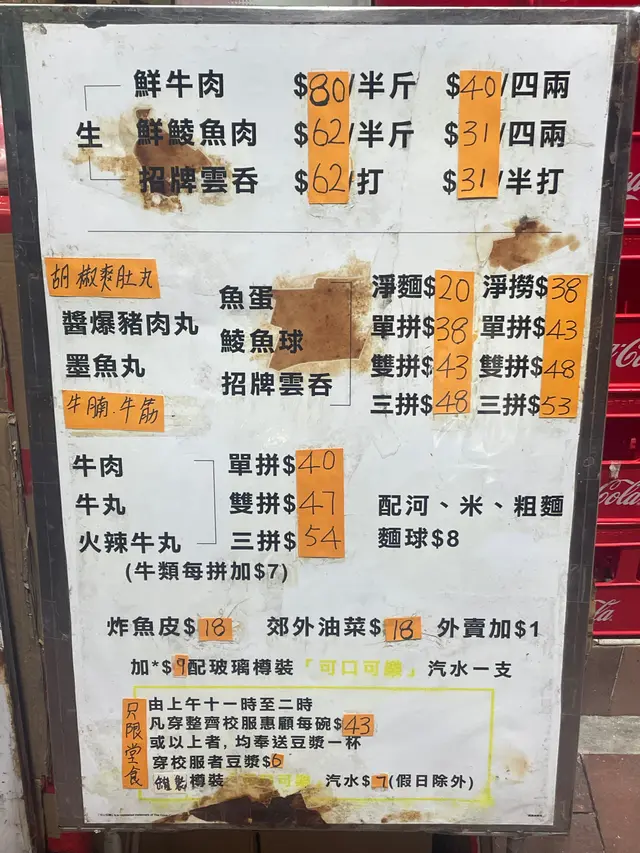 生
鮮牛肉 $80/半斤 $40/四兩
鮮鯪魚肉 $62/半斤 $31/四兩
招牌雲吞 $62/打 $31/半打
胡椒爽肚丸
醬爆豬肉丸
墨魚丸
牛腩.牛筋
魚蛋
鯪魚球
招牌雲吞
淨麵$20 淨撈$38
單拼$38 單拼$43
雙拼$43 雙拼$48
三拼$48 三拼$53
牛肉 單拼$40
牛丸 雙拼$47
火辣牛丸 三拼$54
(牛類每拼加$7)
配河、米、粗麵
麵球$8
炸魚皮$18 郊外油菜$18 外賣加$1
加*$9配玻璃樽裝「可口可樂」汽水一支
只限堂食
由上午十一時至二時
凡穿整齊校服惠顧每碗$43
或以上者, 均奉送豆漿一杯
穿校服者豆漿$6
樽裝 可樂 汽水$7(假日除外)
Coca-Cola